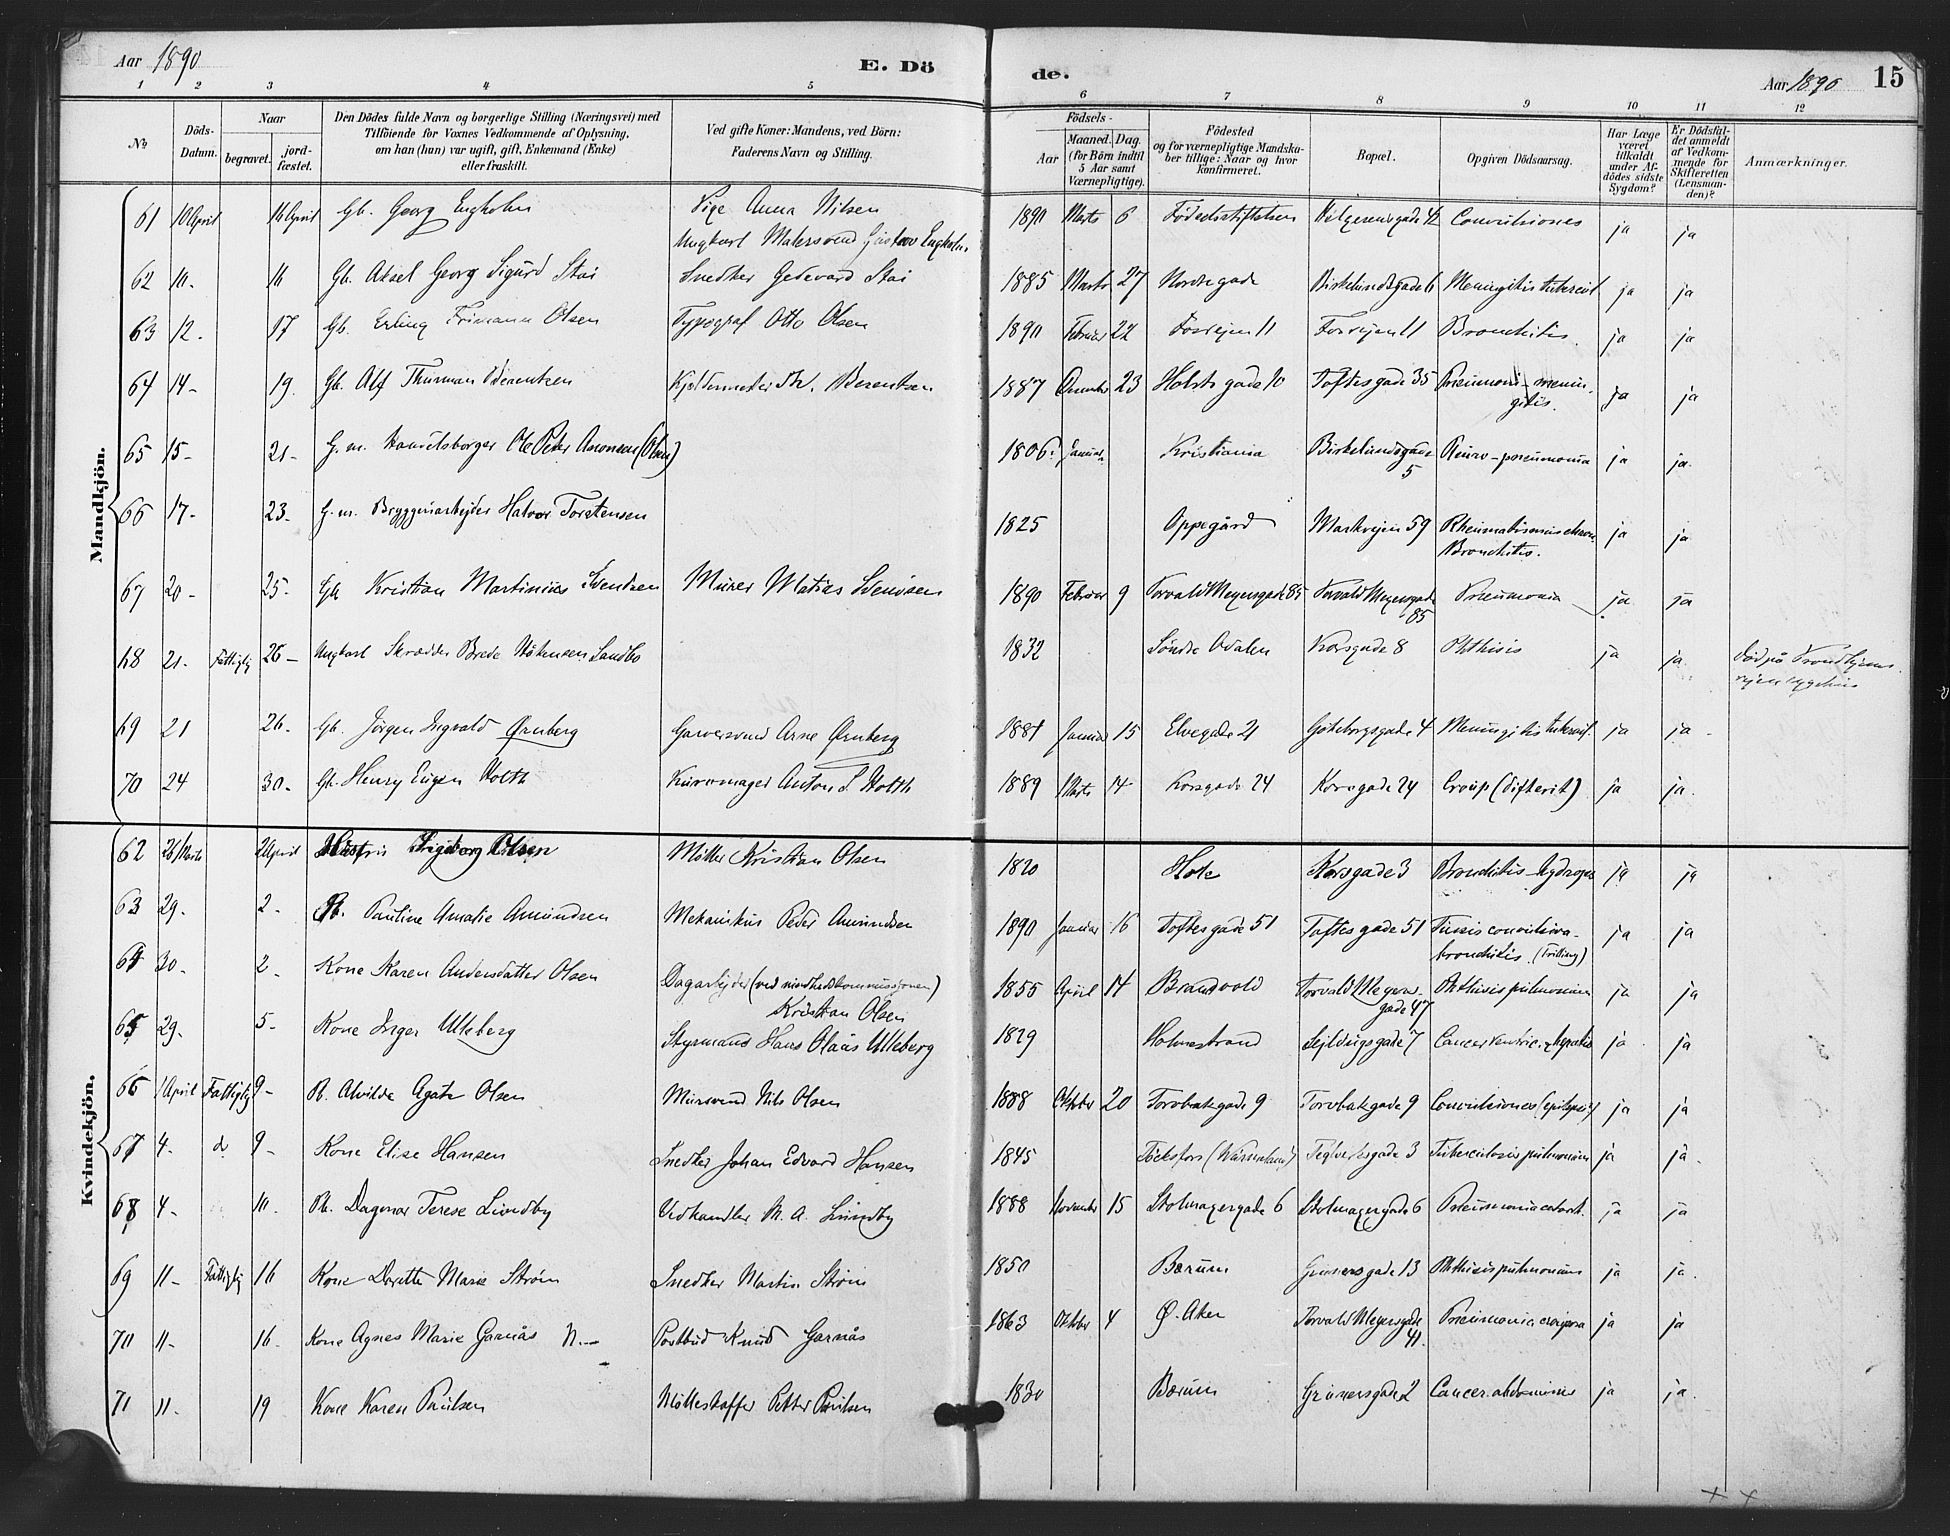 Aar 1890
E. Dö
de.
Aar 1890
15
1 2 3 4 5 6 7 8 9 10 11 12
No
Döds-
Datum.
Naar
begravet.
jord-
fæstet.
Den Dödes fulde Navn og borgerlige Stilling (Næringsvei) med
Tilföiende for Voxnes Vedkommende af Oplysning,
om han (hun) var ugift, gift, Enkemand (Enke)
eller fraskilt.
Ved gifte Koner: Mandens, ved Börn:
Faderens Navn og Stilling.
Födsels-
Aar
Maaned. Dag.
(for Börn indtil
5 Aar samt
Værnepligtige).
Födested
og for værnepligtige Mandska-
ber tillige: Naar og hvor
konfirmeret.
Bopæl.
Opgiven Dödsaarsag.
Har Læge
været
tilkaldt
under Af-
dödes sidste
Sygdom?
Er Dödsfal-
det anmeldt
af Vedkom-
mende for
Skifteretten
(Lensman-
den)?
Anmærkninger.
Mandkjön.
61 10 April 16 April Gb. Georg Engholm Pige Anna Nilsen 1890 Marts 6 Fødselsstiftelsen 42 Convulsiones ja ja
Ungkarl Malersvend Gustav Engholm
62 Gb. Aksel Georg Sigurd Stai Snedker Stai 1885 Marts 27 Nordregade Birkelundsgade 6 Meningitis ja ja
63 12. 17 Gb. Erling Frimann Olsen Typograf Otto Olsen 1890 Februar 22 Fosvejen 11 Fosvejen 11 Bronchitis. ja ja
64 14- 19. Gb. Alf Thurman Berentzen Berentzen 1887 23 Holsts gade 10 Toftes gade 35 Pneumoni-menin-
gitis. ja ja
65 15- 21- G. m. Handelsborger Ole Peter (Olsen) 1806. Januar Kristiania Birkelundsgade
5 Pleuro-pneumonia ja ja.
66 17- 23- G. m. Bryggeriarbejder Halvor Torstensen 1825 Oppegård Markvejen 59 Rheumatismus chron.
Bronchitis. ja ja
67 20- 25- Gb Kristian Martinius Svendsen Murer Matias Svendsen 1890 Februar 9 Torvald Meyersgade 85 Torvald Meyersgade
85 Pneumonia ja ja
68 21- Fattiglig 26- Ungkarl Skrædder Brede Håkensen Sandbo 1832 Söndre Odalen Korsgade 8 Phthisis ja ja Död på Trondhjems-
vejens sygehus
69 21 26. Gb. Jörgen Ingvald Ørnberg Garversvend Arne Ørnberg 1881 Januar 15 Elvegade 21 Göteborgsgade 4 Meningitis ja ja
70 24 30. Gb. Henry Eugen Holth Kurvmager Anton L Holth 1889 Marts 14 Korsgade 24 Korsgade 24 Croup (difterit) ja ja.
Kvindekjön.
62 26/Marts 2 April Ingeborg Olsen Möller Kristian Olsen 1820 Hole Korsgade 3 Bronchitis ja ja
63 29. 2. Pb. Pauline Amalie Amundsen Mekanikus Peder Amundsen 1890 Januar 16 Toftesgade 51 Toftes gade 51 Tussis convulsiva-
bronchitis. (Trilling) ja ja
64 30. 2. Kone Karen Andersdatter Olsen Dagarbejder (ved sundhedskommissjonen)
Kristian Olsen 1855 April 14 Brandvold Torvald Meyers-
gade 47 Phthisis pulmonum ja ja
65 29. 5. Kone Inger Ulleberg Styrmand Hans Olaus Ulleberg 1829 Holmestrand Sejldugsgade 7 Cancer ventric. & hepatis ja ja
66 1 April Fattiglig 9- Pb. Alvilda Agate Olsen Mursvend Nils Olsen 1888 Oktober 20 Torvbakgade 9 Torvbakgade 9 Convulsiones (epilepsi) ja ja
67 4- d 9- Kone Elise Hansen Snedker Johan Edvard Hansen 1845 Töcksfors (Wärmland) Teglverksgade 3 Tuberculosis pulmonum ja ja.
68 4- 10. Pb. Dagmar Terese Lundby Vedhandler M. A. Lundby 1888 November 15 Stolmagergade 6 Stolmagergade 6 Pneumonia catarrh. ja ja
69 11- Fattiglig 16 Kone Dorette Marie Ström Snedker Martin Ström 1850 Bærum Grunersgade 13 Phthisis pulmonum ja ja.
70 11- 16. Kone Agnes Marie Garnås N. Postbud Knud Garnås 1863 Oktober 4 Ø. Aker Torvald Meyersgade
41. Pneumonia ja ja
71 11. 19 Kone Karen Paulsen Petter Paulsen 1830 Bærum Grunersgade 2 Cancer. abdominis ja ja.